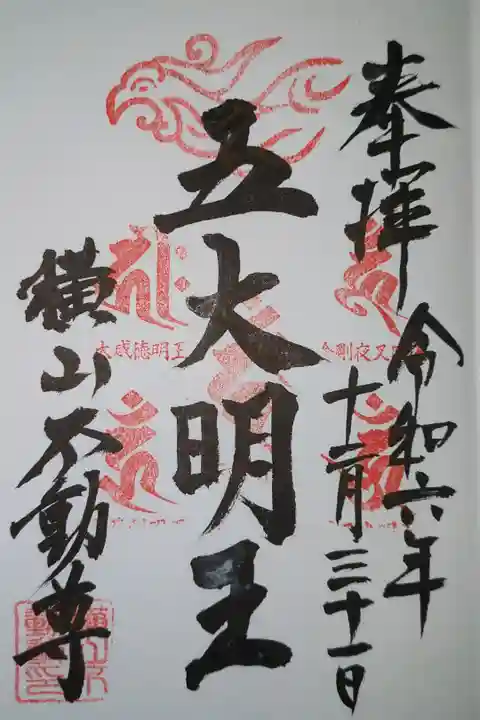 奉拝
令和六年
十二月三十一日
五大明王
横山不動尊
大威徳明王
金剛夜叉明王